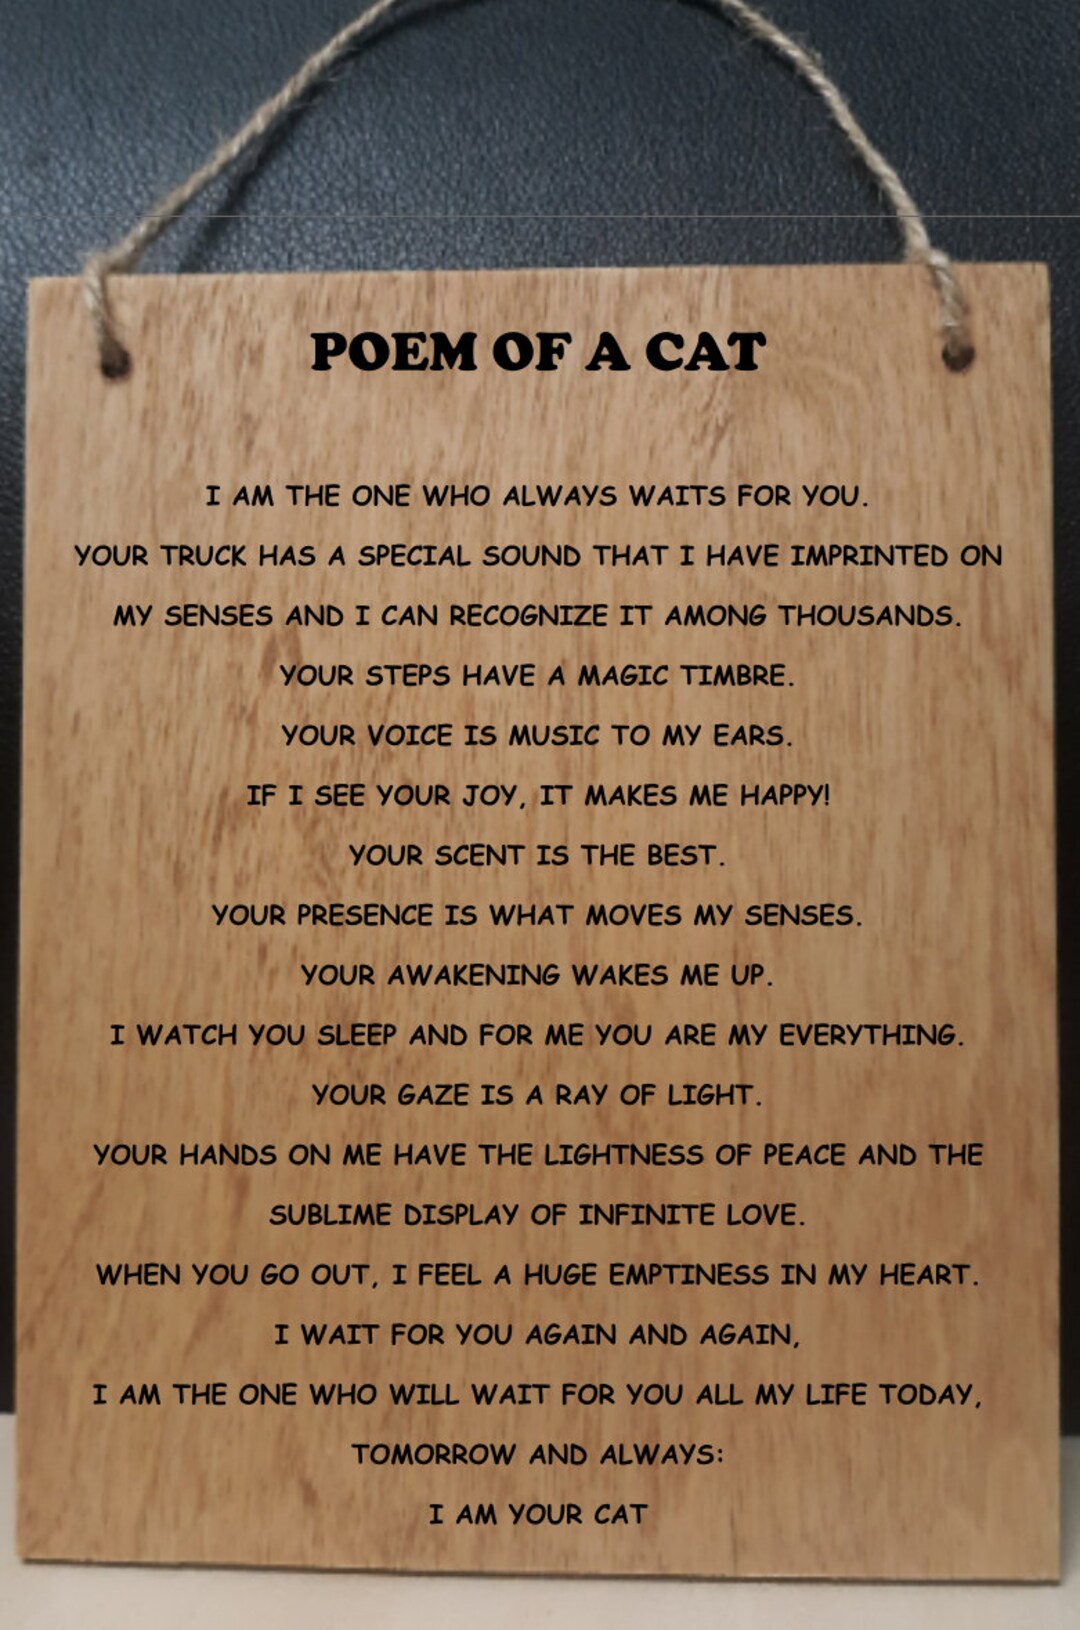 POEM OF A CAT
I AM THE ONE WHO ALWAYS WAITS FOR YOU.
YOUR TRUCK HAS A SPECIAL SOUND THAT I HAVE IMPRINTED ON
MY SENSES AND I CAN RECOGNIZE IT AMONG THOUSANDS.
YOUR STEPS HAVE A MAGIC TIMBRE.
YOUR VOICE IS MUSIC TO MY EARS.
IF I SEE YOUR JOY, IT MAKES ME HAPPY!
YOUR SCENT IS THE BEST.
YOUR PRESENCE IS WHAT MOVES MY SENSES.
YOUR AWAKENING WAKES ME UP.
I WATCH YOU SLEEP AND FOR ME YOU ARE MY EVERYTHING.
YOUR GAZE IS A RAY OF LIGHT.
YOUR HANDS ON ME HAVE THE LIGHTNESS OF PEACE AND THE
SUBLIME DISPLAY OF INFINITE LOVE.
WHEN YOU GO OUT, I FEEL A HUGE EMPTINESS IN MY HEART.
I WAIT FOR YOU AGAIN AND AGAIN,
I AM THE ONE WHO WILL WAIT FOR YOU ALL MY LIFE TODAY,
TOMORROW AND ALWAYS:
I AM YOUR CAT